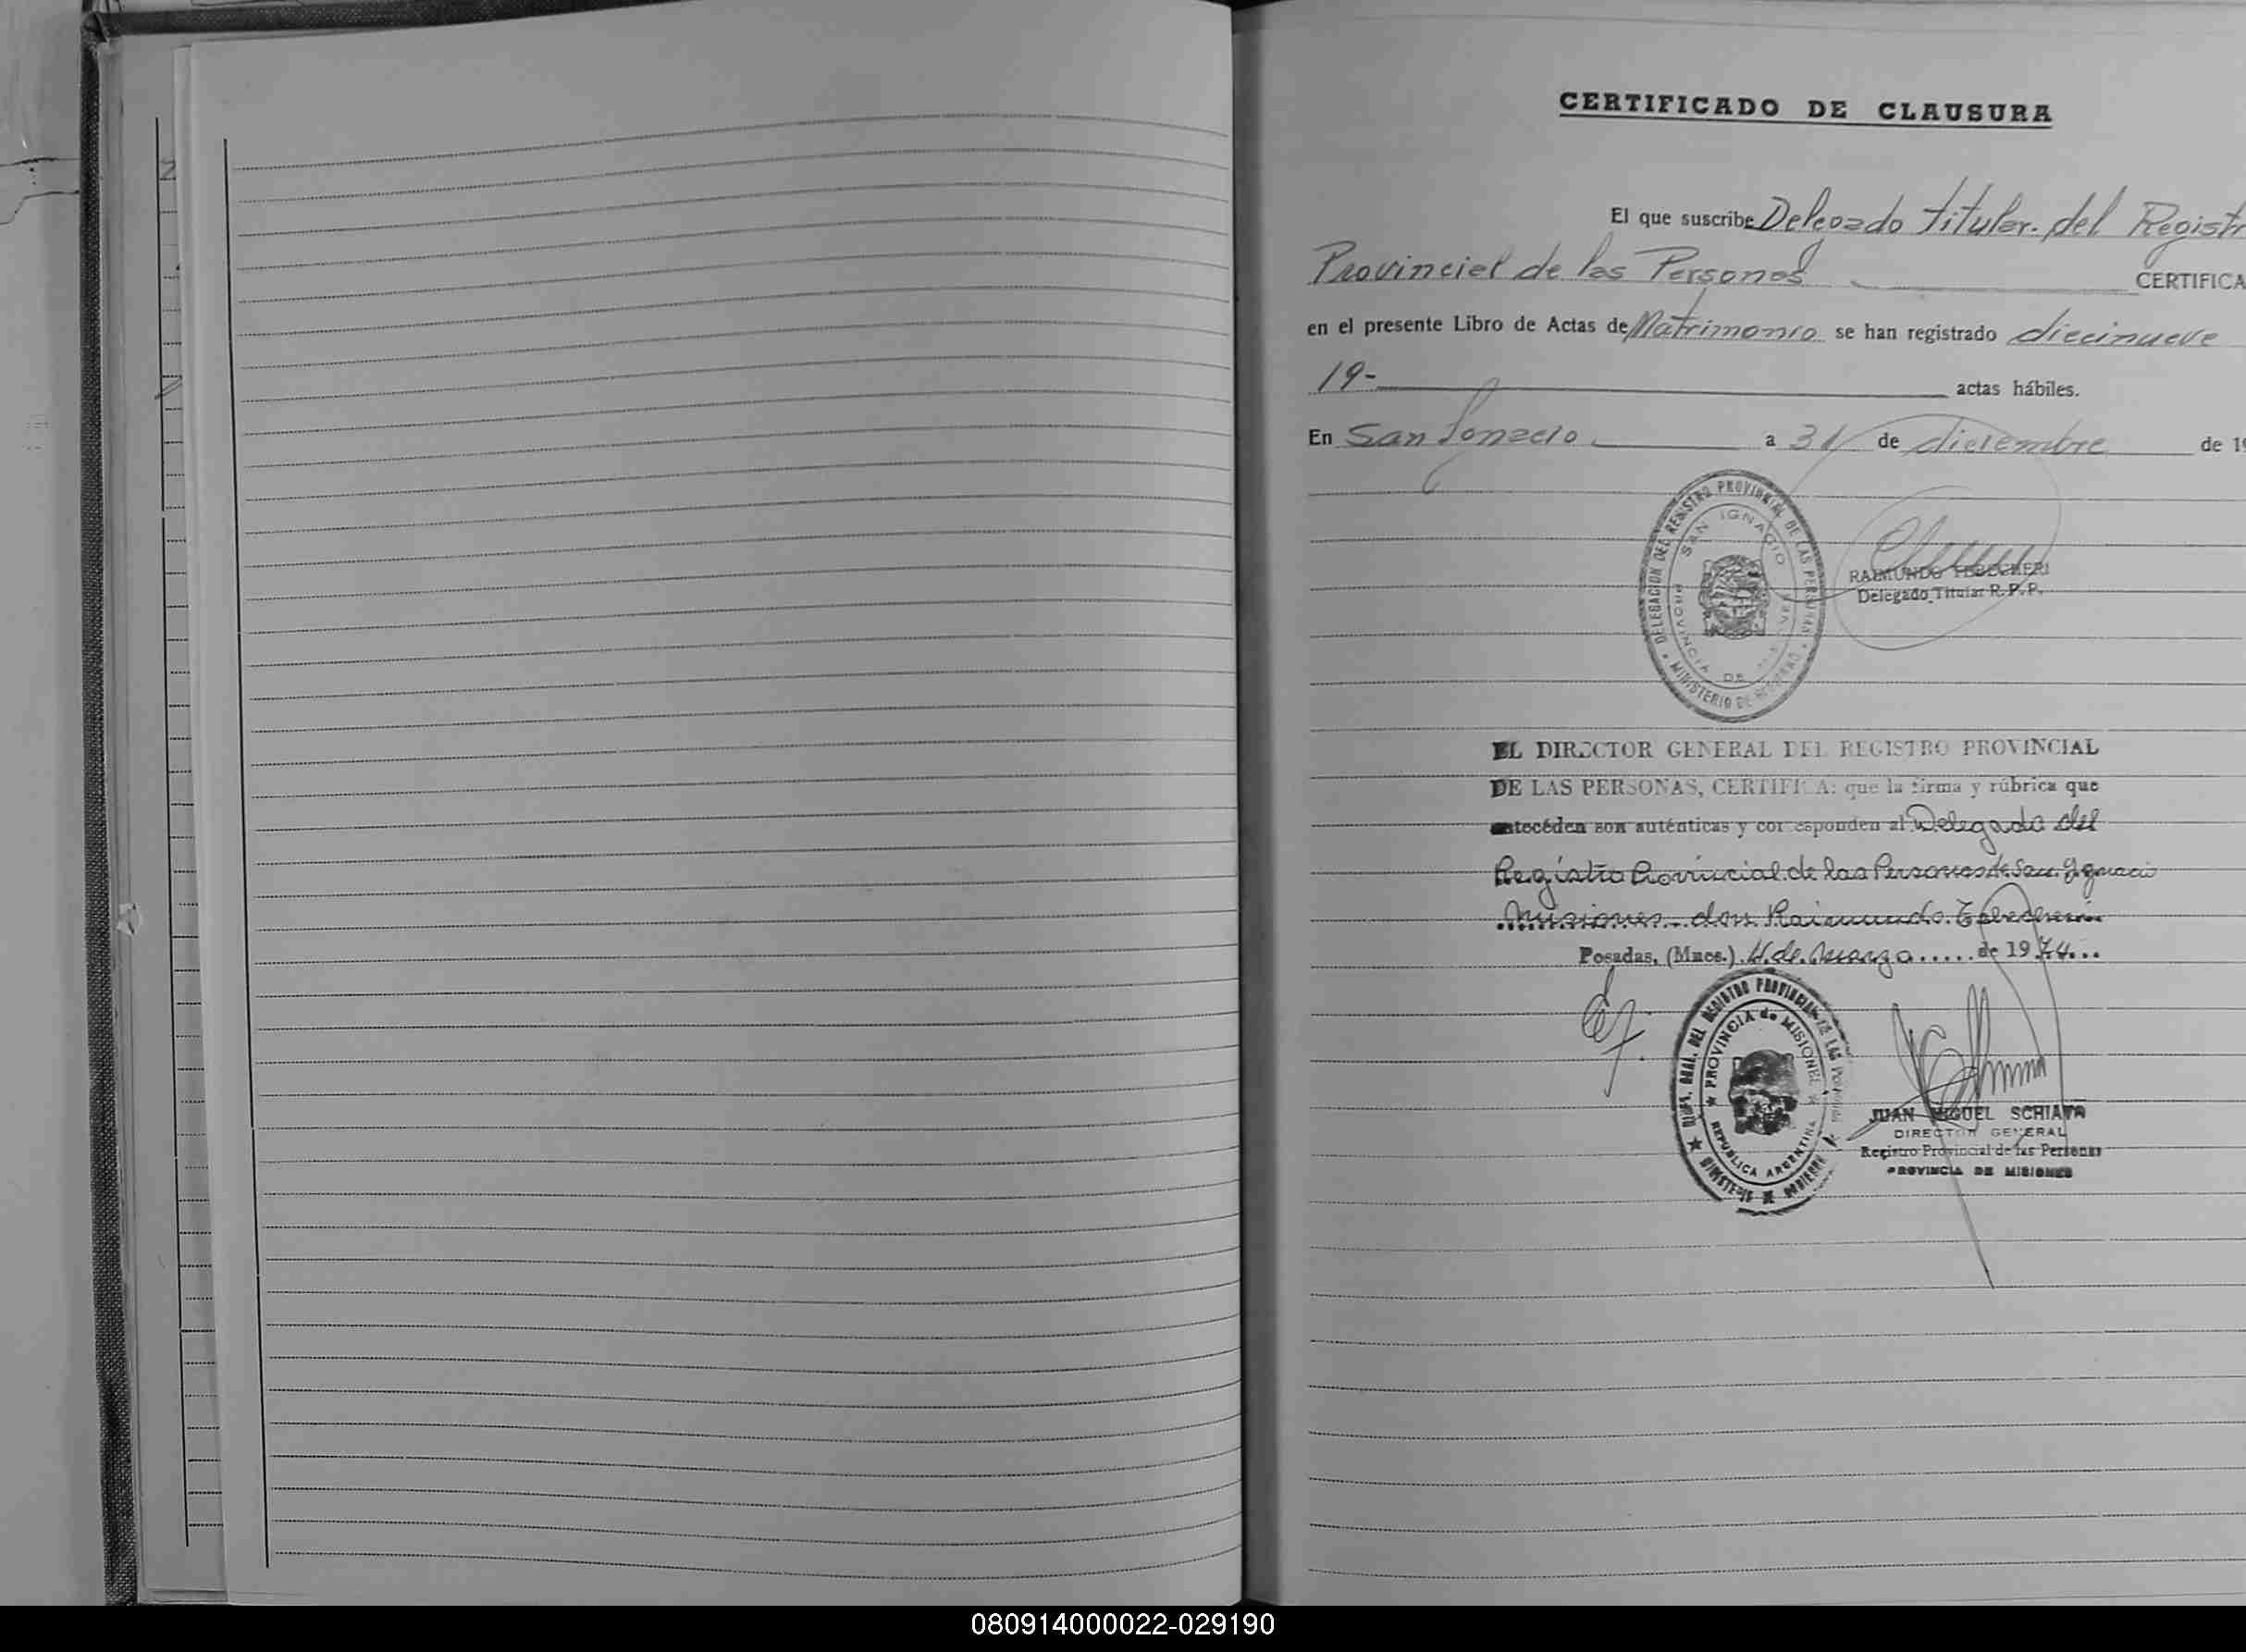 CERTIFICADO DE CLAUSURA
El que suscribe Delegado titular. del Registr
Provincial de las Personas CERTIFICA
en el presente Libro de Actas de Matrimonio se han registrado diecinueve
19- actas hábiles.
En San Ignacio a 31 de diciembre de 19
DELEGACION DEL REGISTRO PROVINCIAL DE LAS PERSONAS
MINISTERIO DE GOBIERNO
SAN IGNACIO
PROVINCIA DE
RAIMUNDO
Delegado Titular R. P. P.
EL DIRECTOR GENERAL DEL REGISTRO PROVINCIAL
DE LAS PERSONAS, CERTIFICA: que la firma y rúbrica que
anteceden son auténticas y corresponden al Delegado del
Registro Provincial de las Personas de San Ignacio
Misiones - don Raimundo
Posadas, (Mnes.) 4 de Marzo ..... de 1974...
DIREC. GRAL. DEL REGISTRO PROVINCIAL DE LAS PERSONAS
PROVINCIA de MISIONES
REPUBLICA ARGENTINA
MINISTERIO DE GOBIERNO
JUAN MIGUEL SCHIAVA
DIRECTOR GENERAL
Registro Provincial de las Personas
PROVINCIA DE MISIONES
080914000022-029190